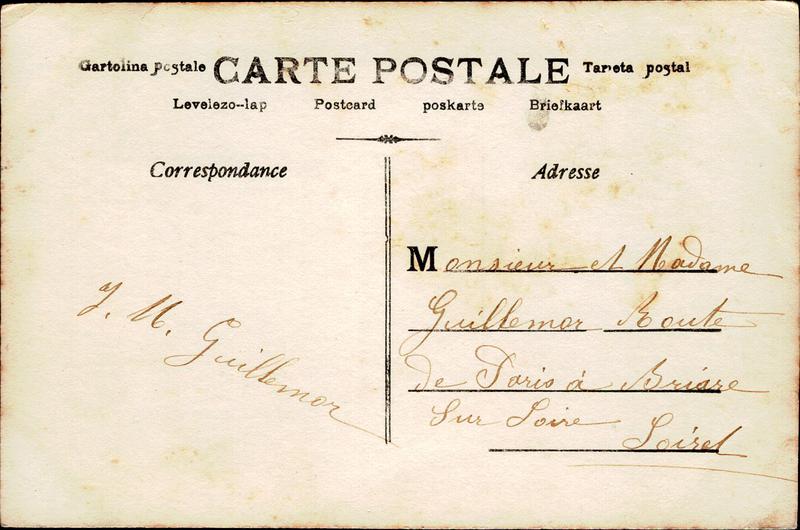 Cartolina postale CARTE POSTALE Tarjeta postal
Levelezo--lap Postcard poskarte Briefkaart
Correspondance
Adresse
J. M. Guillemor
Monsieur et Madame
Guillemor Route
de Paris à Briare
Sur Loire
Loiret